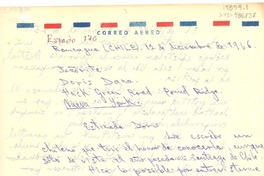 CORREO AEREO
Estado 170
Rancagua (CHILE), 13 de Diciembre de 1966.
Señorita
Doris Dana
Hack Green Road - Pound Ridge
Nueva York.
Estimada Doris:
Le escribe un
chileno que tuvo el honor de conocerla, aunque
sólo de vista el año pasado en Santiago de Chile
Hice lo posible por